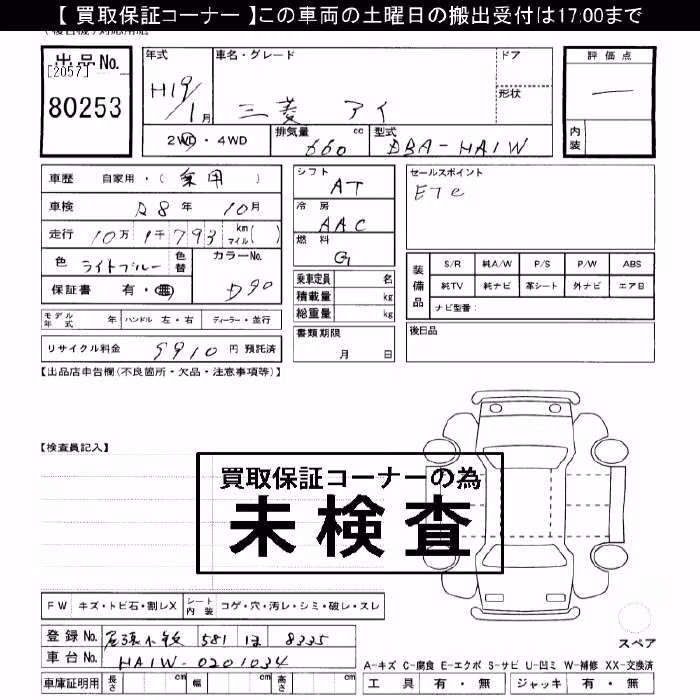 【 買取保証コーナー 】この車両の土曜日の搬出受付は17:00まで
出品No.
[2057]
80253
年式
H19/1月
車名・グレード
三菱 アイ
ドア
形状
評価点
内装
2WD・4WD
排気量 660 cc
型式 DBA-HA1W
車歴 自家用・(乗用)
車検 R8年 10月
走行 10万1千793 km マイル( )
色 ライトブルー 色替
カラーNo. D90
保証書 有・無
シフト AT
冷房 AAC
燃料 G
乗車定員 名
積載量 kg
総重量 kg
書類期限
月 日
セールスポイント
ETC
装備品
S/R 純A/W P/S P/W ABS
純TV 純ナビ 革シート 外ナビ エアB
ナビ型番:
後日品
モデル年式 年 ハンドル 左・右 ディーラー・並行
リサイクル料金 9910 円 預託済
【出品店申告欄(不良箇所・欠品・注意事項等)】
【検査員記入】
買取保証コーナーの為
未検査
FW キズ・トビ石・割レX シート内装 コゲ・穴・汚レ・シミ・破レ・スレ
登録No. 尾張小牧 581 8335
車台No. HA1W-0201034
スペア
A-キズ C-腐食 E-エクボ S-サビ U-凹ミ W-補修 XX-交換済
車庫証明用 長さ cm 幅 cm 高さ cm
工具 有・無 ジャッキ 有・無